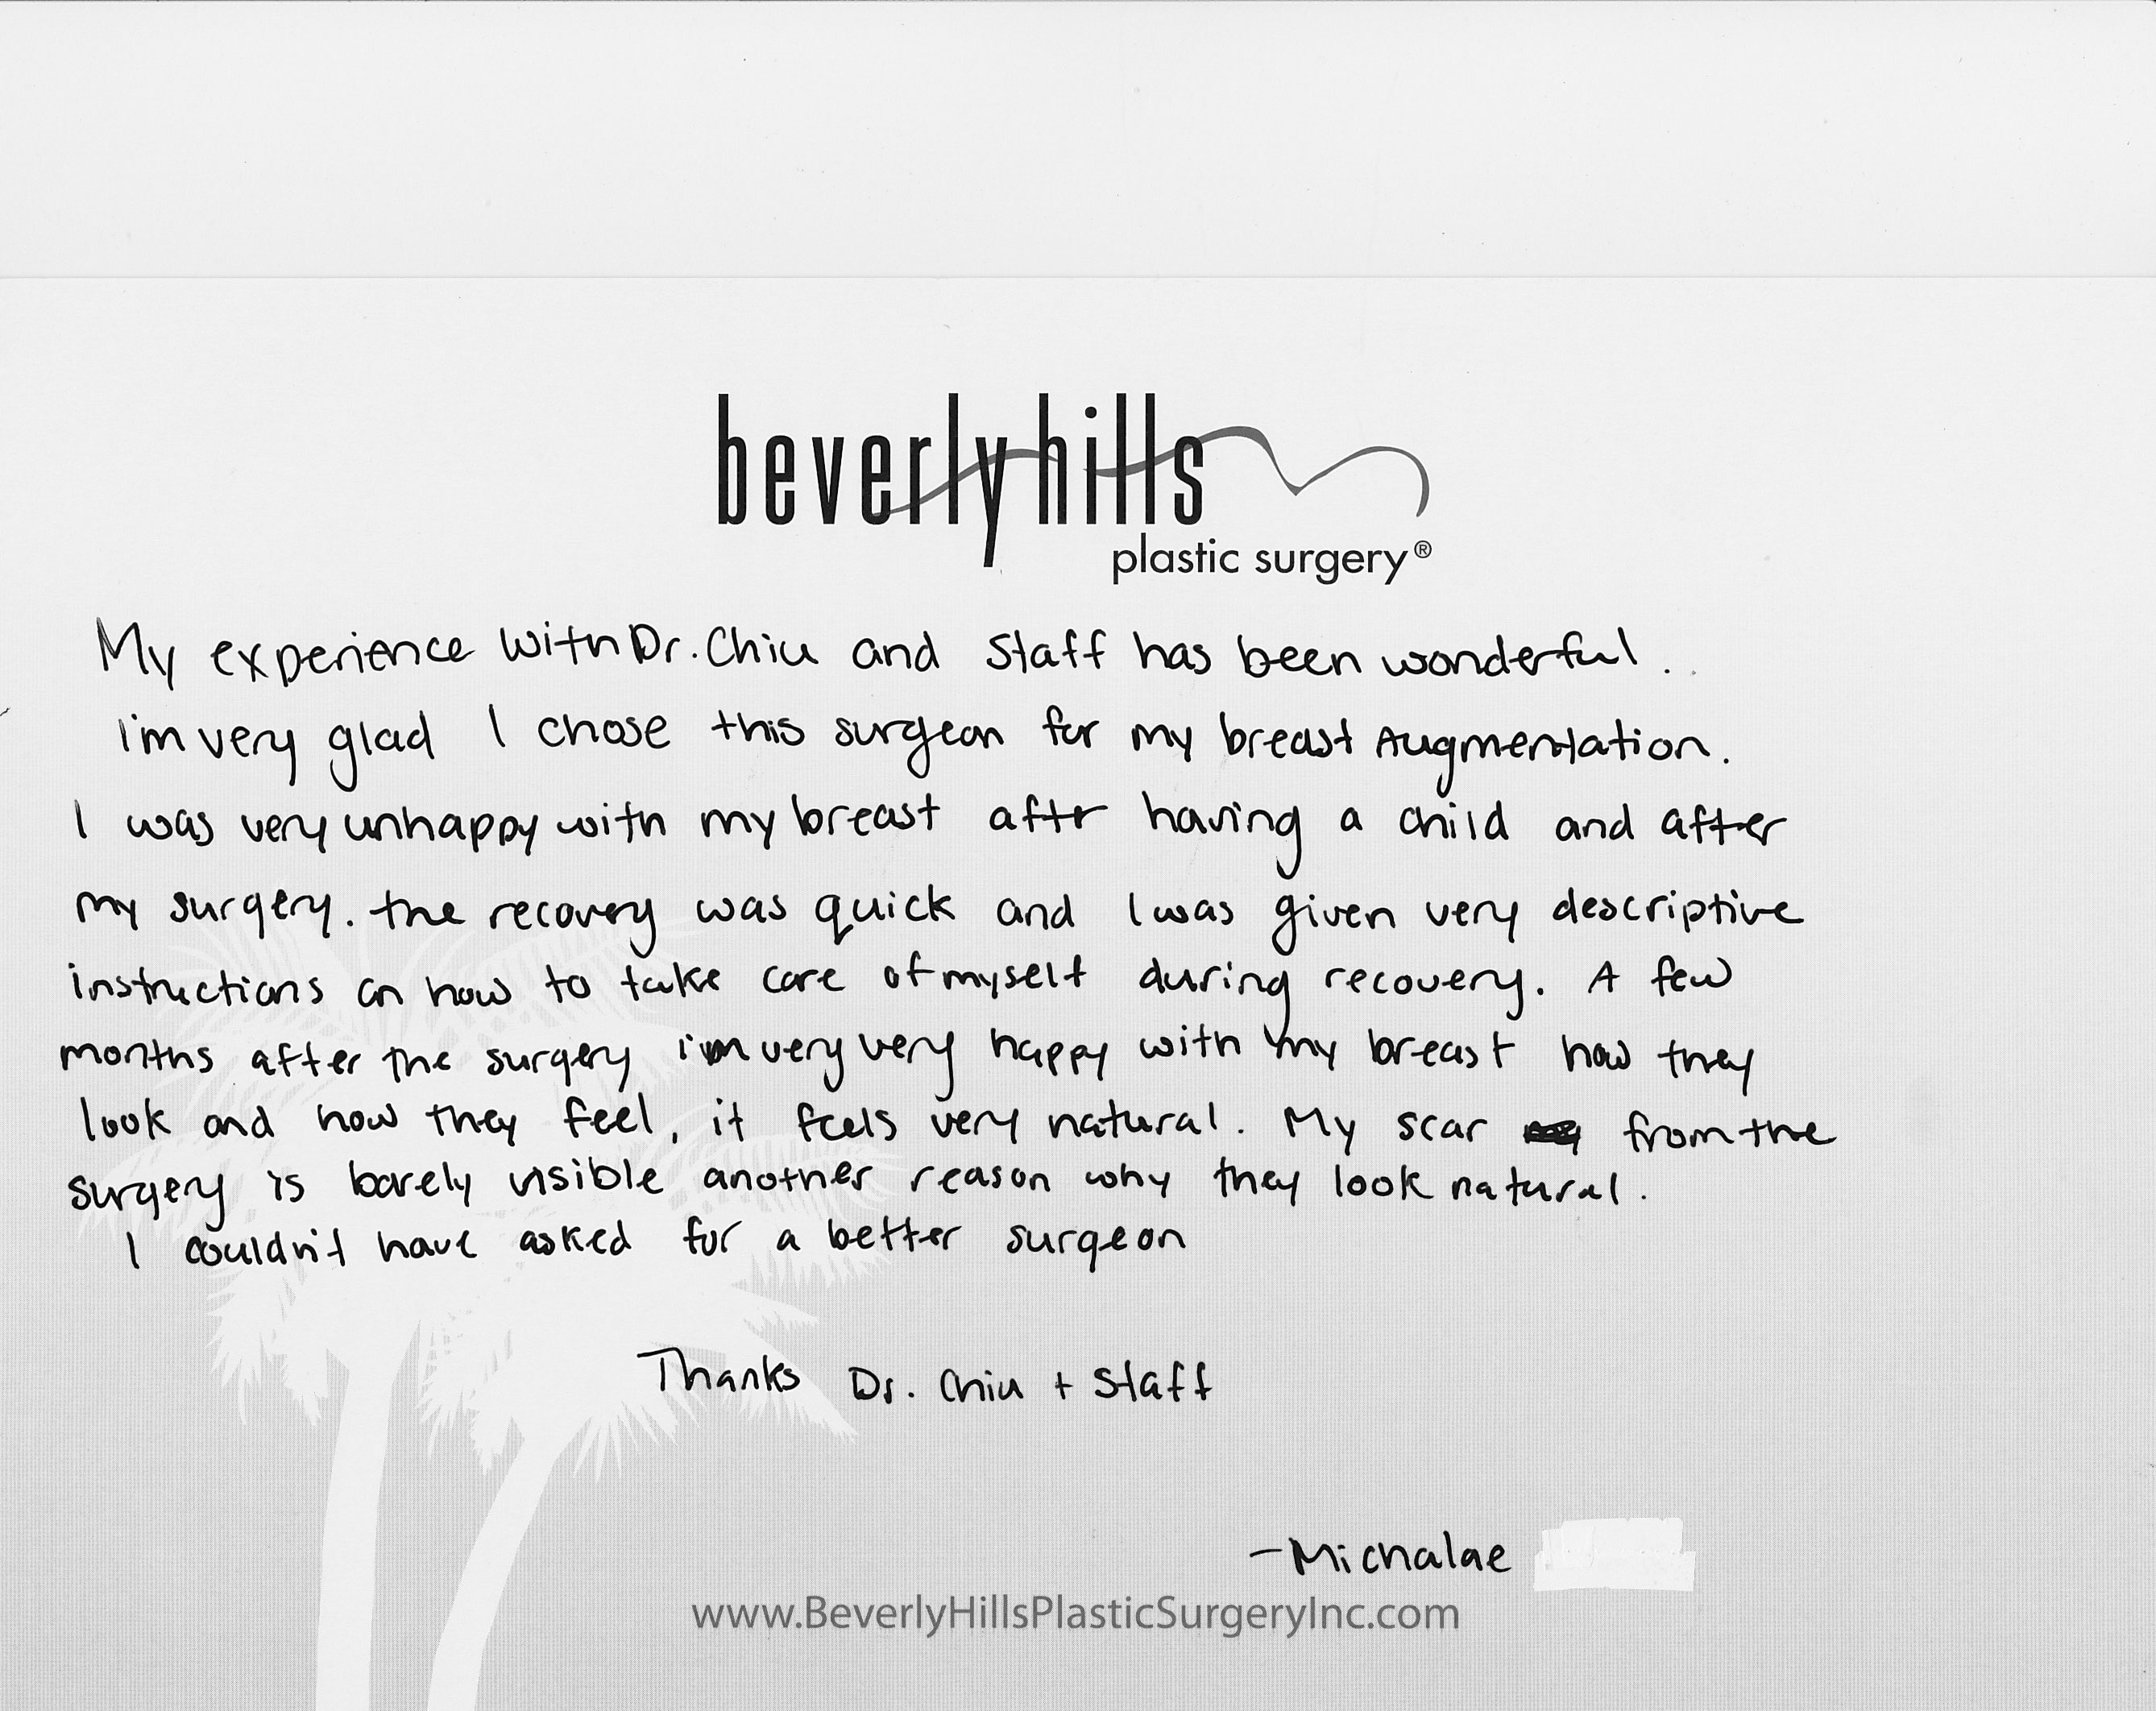 beverly hills
plastic surgery®
My experience with Dr. Chiu and staff has been wonderful..
I'm very glad I chose this surgeon for my breast Augmentation.
I was very unhappy with my breast aftr having a child and after
my surgery. the recovery was quick and I was given very descriptive
instructions on how to take care of myself during recovery. A few
months after the surgery i'm very very happy with my breast how they
look and how they feel, it feels very natural. My scar from the
surgery is barely visible another reason why they look natural.
I couldn't have asked for a better surgeon
Thanks Dr. Chiu + Staff
-Michalae
www.BeverlyHillsPlasticSurgeryInc.com